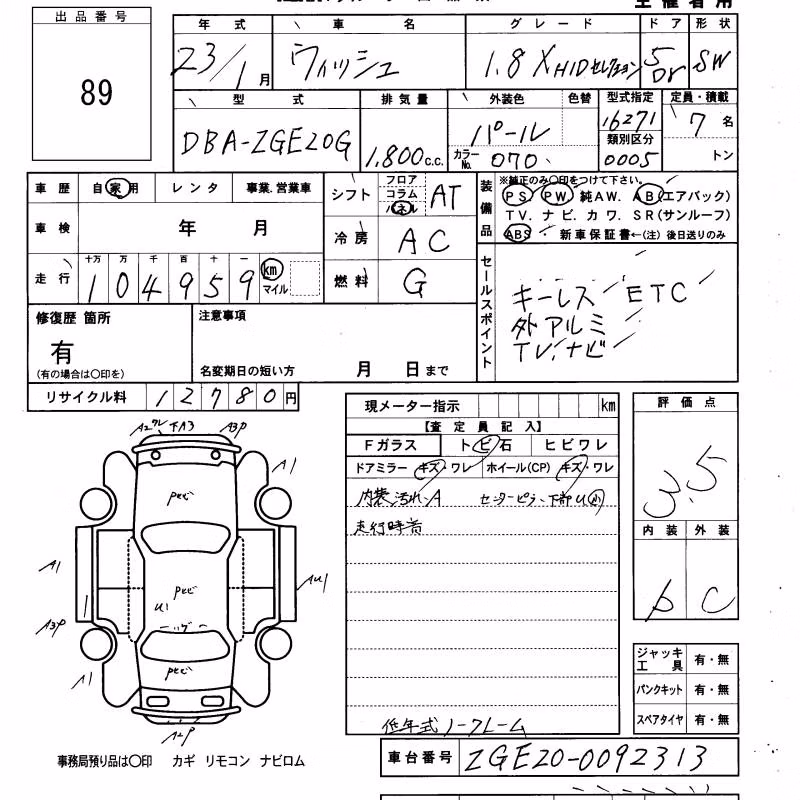 出品番号
89
主催者用
年式 車名 グレード ドア 形状
23/1月 ウィッシュ 1.8X HIDセレクション 5Dr SW
型式 排気量 外装色 色替 型式指定 定員・積載
DBA-ZGE20G 1,800c.c. パール 16271 7名
類別区分
カラーNo. 070 0005 トン
車歴 自家用 レンタ 事業.営業車
シフト フロア コラム パネル AT
装備品
※純正のみ○印をつけて下さい。
PS PW 純AW. AB(エアバック)
TV. ナビ. カワ. SR(サンルーフ)
ABS. 新車保証書←(注)後日送りのみ
車検 年 月
冷房 AC
走行 十万 万 千 百 十 一
104959 km マイル
燃料 G
セールスポイント
キーレス ETC
外アルミ
TV.ナビ
修復歴 箇所
有
(有の場合は○印を)
注意事項
名変期日の短い方 月 日まで
リサイクル料 12780円
現メーター指示 km
【査定員記入】
Fガラス トビ石 ヒビワレ
ドアミラー キズ・ワレ ホイール(CP) キズ・ワレ
内装汚れ.A センターピラー下部U小
走行時音
低年式ノークレーム
評価点
3.5
内装 外装
b C
ジャッキ工具 有・無
パンクキット 有・無
スペアタイヤ 有・無
A2ワレ 下A3 A3P
A1
Pセビ
A1
Pセビ
U1
A3P
A1
Pセビ
A2P
事務局預り品は○印 カギ リモコン ナビロム
車台番号 ZGE20-0092313